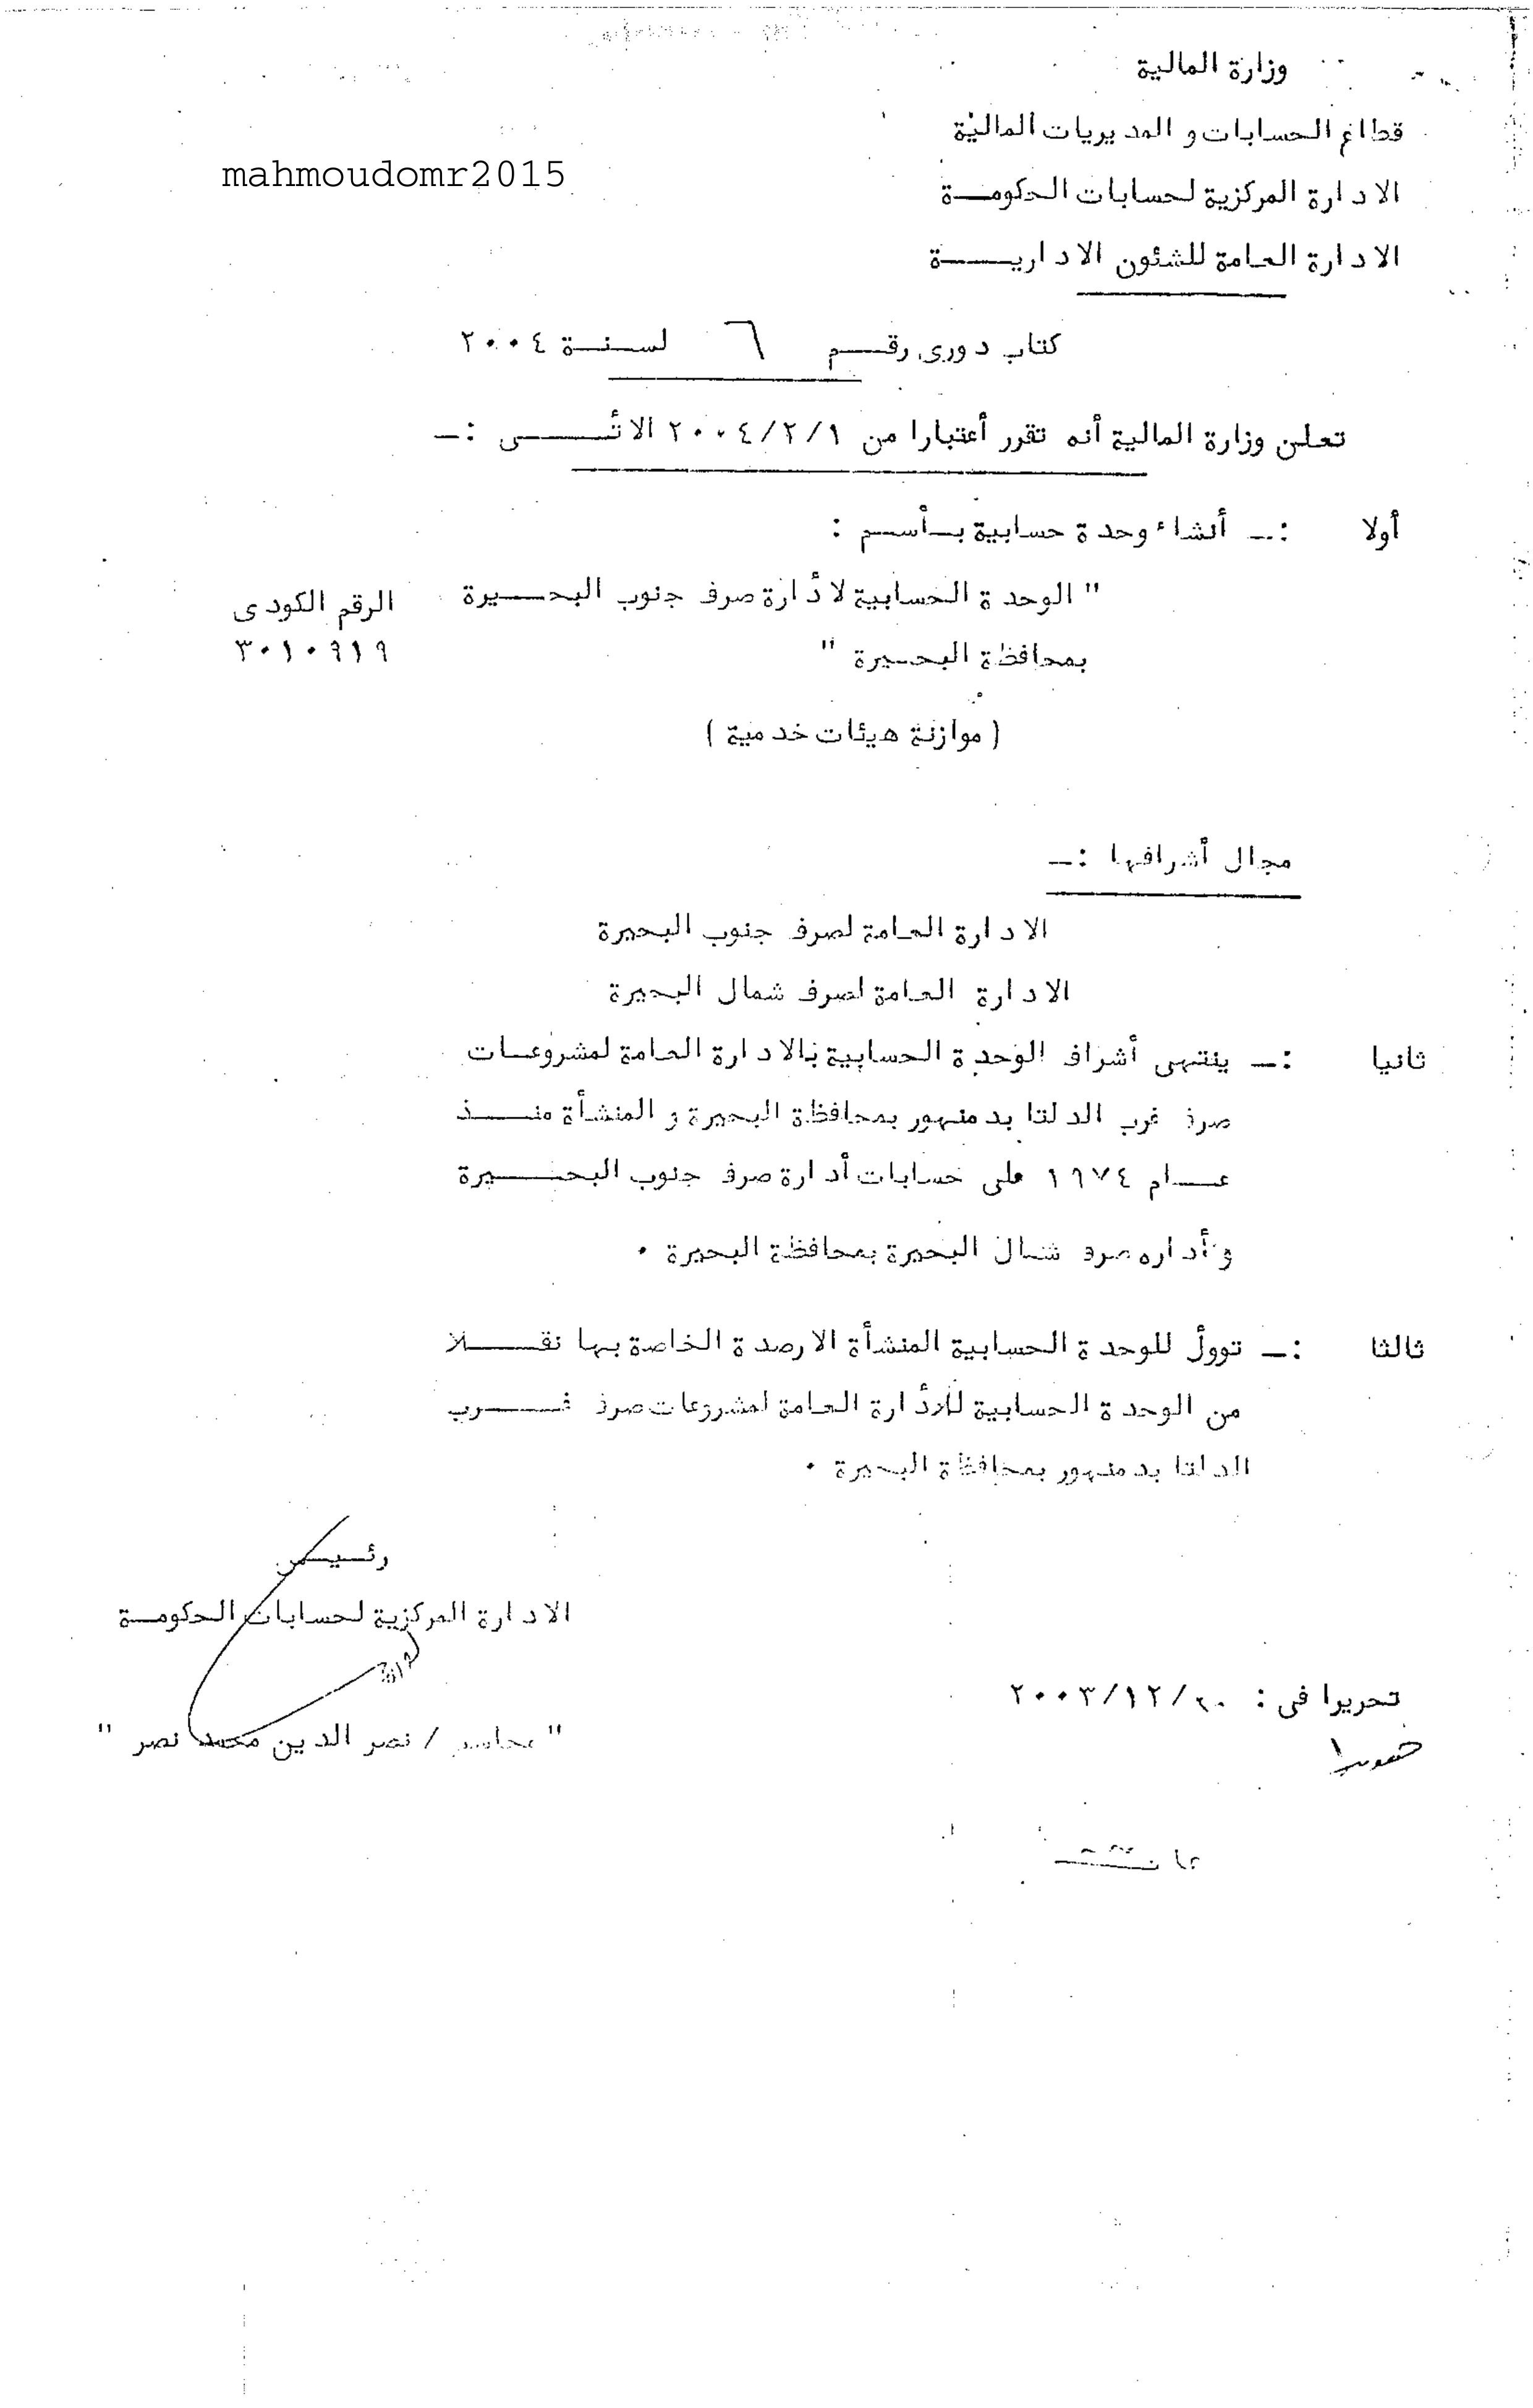 وزارة المالية
قطاع الحسابات و المديريات المالية
mahmoudomr2015
الادارة المركزية لحسابات الحكومـــة
الادارة العامة للشئون الاداريـــــة
كتاب دورى رقـــم ٦ لســنــة ٢٠٠٤
تعلن وزارة المالية أنه تقرر أعتبارا من ٢٠٠٤/٢/١ الاتــــــى :ــ
أولا :ــ أنشاء وحدة حسابية بــأســم :
" الوحدة الحسابية لأدارة صرف جنوب البحـــيرة الرقم الكودى
بمحافظة البحــيرة " ٣٠١٠٩١٩
( موازنة هيئات خدمية )
مجال أشرافها :ــ
الادارة العامة لصرف جنوب البحيرة
الادارة العامة لصرف شمال البحيرة
ثانيا :ــ ينتهى أشراف الوحدة الحسابية بالادارة العامة لمشروعــات
صرف غرب الدلتا بدمنهور بمحافظة البحيرة و المنشأة منـــــذ
عـــام ١٩٧٤ على حسابات أدارة صرف جنوب البحـــــيرة
و أداره صرف شمال البحيرة بمحافظة البحيرة ٠
ثالثا :ــ توول للوحدة الحسابية المنشأة الارصدة الخاصة بها نقـــــلا
من الوحدة الحسابية للأدارة العامة لمشروعات صرف غـــــرب
الدلتا بدمنهور بمحافظة البحيرة ٠
رئــيــس
الادارة المركزية لحسابات الحكومـــة
تحريرا فى : ٢٠٠٣/١٢/
" محاسب / نصر الدين محمد نصر "